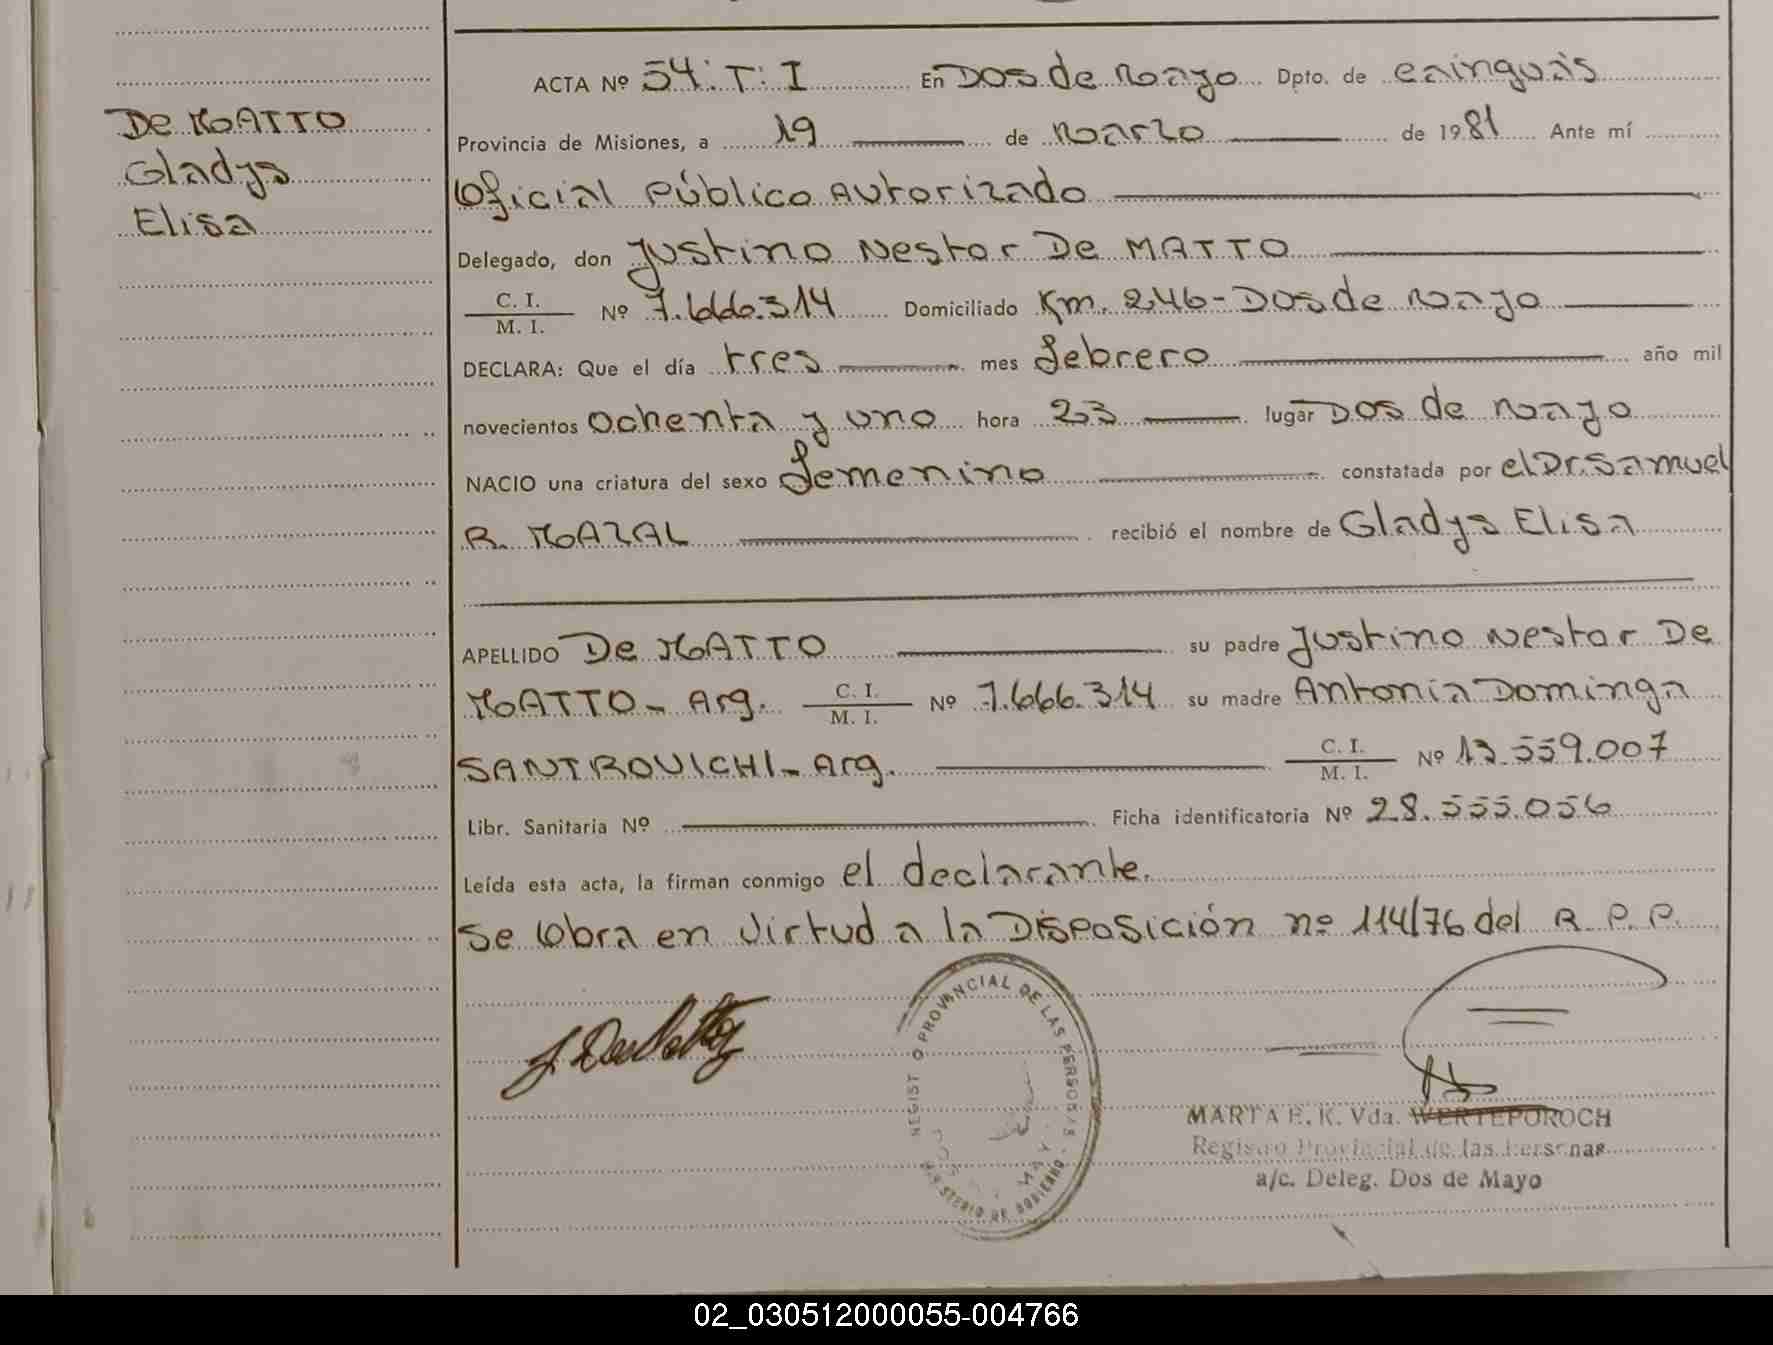 De MATTO
Gladys
Elisa
ACTA Nº 54: T: I En Dos de Mayo Dpto. de cainguàs
Provincia de Misiones, a 19 de Marzo de 1981 Ante mí
Oficial Público Autorizado
Delegado, don Justino Nestor De MATTO
C. I.
M. I. Nº 7.666.314 Domiciliado Km. 246-Dos de Mayo
DECLARA: Que el día tres mes febrero año mil
novecientos ochenta y uno hora 23 lugar Dos de Mayo
NACIO una criatura del sexo femenino constatada por el Dr. Samuel
R. MAZAL recibió el nombre de Gladys Elisa
APELLIDO De MATTO su padre Justino Nestor De
MATTO - Arg. C. I. M. I. Nº 7.666.314 su madre Antonia Dominga
SANTROVICHI - Arg. C. I. M. I. Nº 13.559.007
Libr. Sanitaria Nº Ficha identificatoria Nº 28.555.056
Leída esta acta, la firman conmigo el declarante.
Se Obra en virtud a la Disposición nº 114/76 del R. P. P.
PROVINCIAL DE LAS PERSONAS
MARTA E. K. Vda. WERTEPOROCH
Registro Provincial de las Personas
a/c. Deleg. Dos de Mayo
02_030512000055-004766